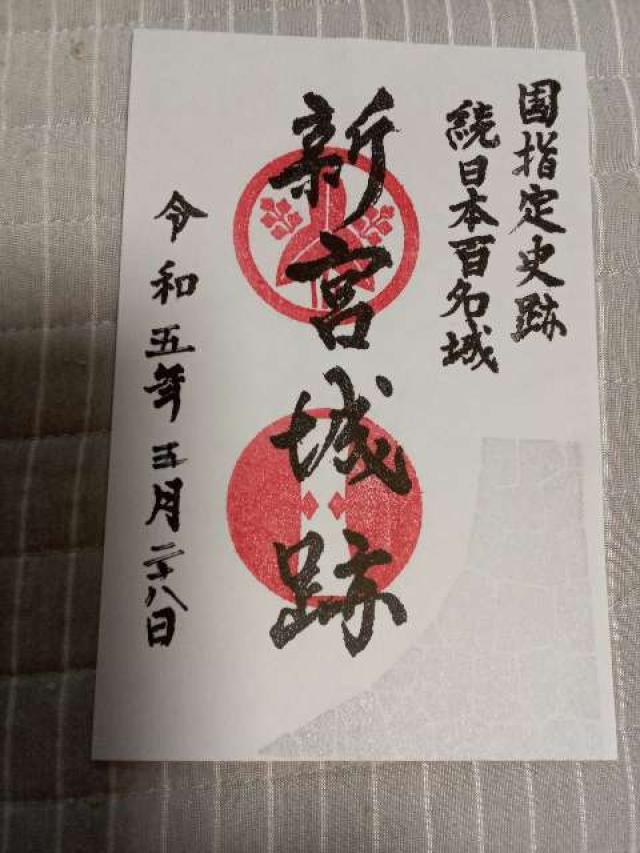 国指定史跡
続日本百名城
新宮城跡
令和五年三月二十八日